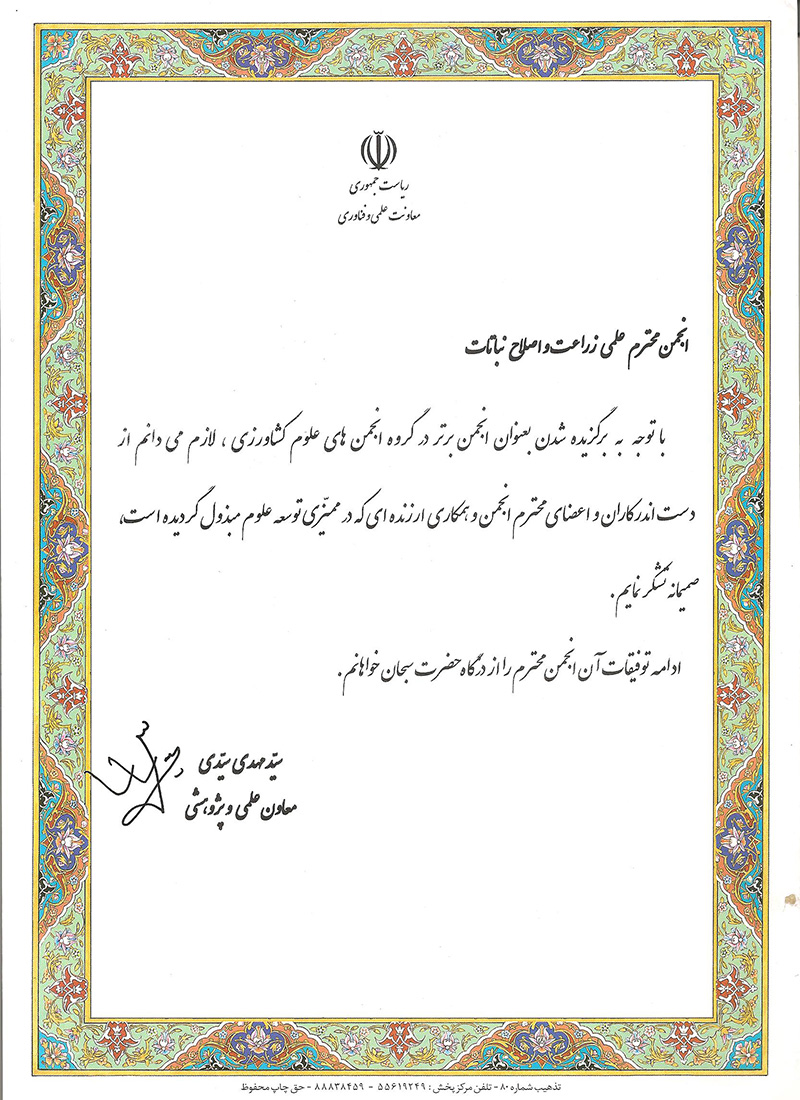 ریاست جمهوری
معاونت علمی و فناوری
انجمن محترم علمی زراعت و اصلاح نباتات
با توجه به برگزیده شدن بعنوان انجمن برتر در گروه انجمن های علوم کشاورزی ، لازم می دانم از
دست اندرکاران و اعضای محترم انجمن و همکاری ارزنده ای که در ممیّزی توسعه علوم مبذول گردیده است،
صمیمانه تشکر نمایم .
ادامه توفیقات آن انجمن محترم را از درگاه حضرت سبحان خواهانم .
سیّد مهدی سیّدی
معاون علمی و پژوهشی
تذهیب شماره ۸۰ - تلفن مرکز پخش : ۵۵۶۱۹۲۴۹ - ۸۸۸۳۸۴۵۹ - حق چاپ محفوظ